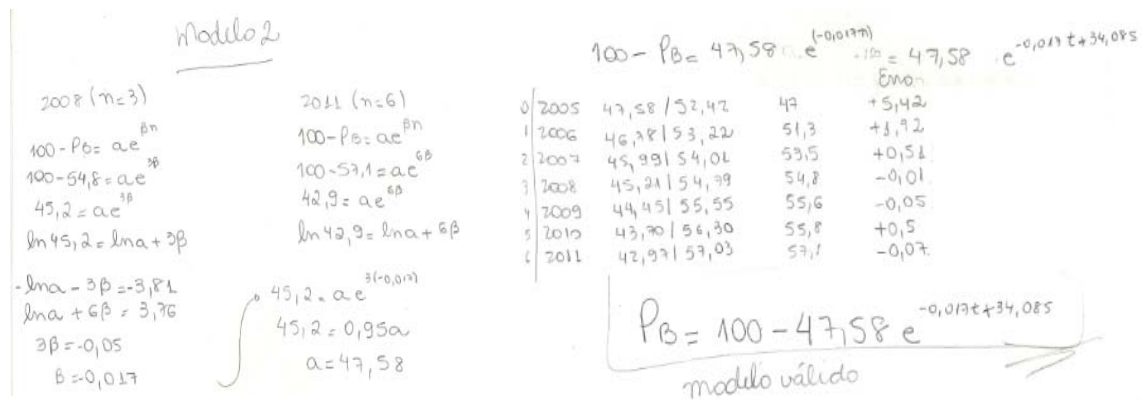 Modelo 2
2008 (n=3)
100 - P_B = ae^{βn}
100 - 54,8 = ae^{3β}
45,2 = ae^{3β}
ln 45,2 = ln a + 3β
- ln a - 3β = -3,81
ln a + 6β = 3,76
3β = -0,05
β = -0,017
2011 (n=6)
100 - P_B = ae^{βn}
100 - 57,1 = ae^{6β}
42,9 = ae^{6β}
ln 42,9 = ln a + 6β
45,2 = ae^{3(-0,017)}
45,2 = 0,95a
a = 47,58
100 - P_B = 47,58 . e^{(-0,017n)} = 47,58 . e^{-0,017t+34,085}
Erro
0 2005 47,58 / 52,42 47 +5,42
1 2006 46,78 / 53,22 51,3 +1,92
2 2007 45,99 / 54,01 53,5 +0,51
3 2008 45,21 / 54,79 54,8 -0,01
4 2009 44,45 / 55,55 55,6 -0,05
5 2010 43,70 / 56,30 55,8 +0,5
6 2011 42,97 / 57,03 57,1 -0,07
P_B = 100 - 47,58 e^{-0,017t+34,085}
modelo válido